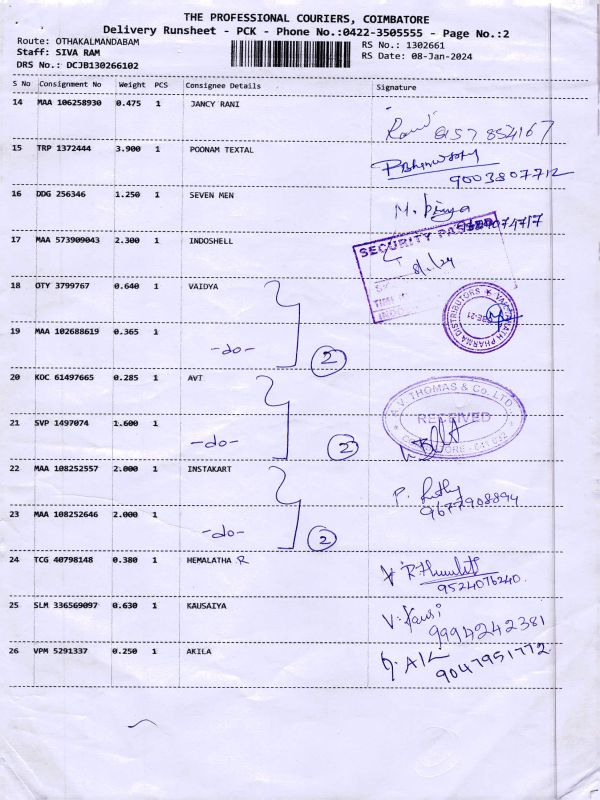 THE PROFESSIONAL COURIERS, COIMBATORE
Delivery Runsheet - PCK - Phone No.:0422-3505555 - Page No.:2
Route: OTHAKALMANDABAM
Staff: SIVA RAM
DRS No.: DCJB130266102
RS No.: 1302661
RS Date: 08-Jan-2024
S No Consignment No Weight PCS Consignee Details Signature
14 MAA 106258930 0.475 1 JANCY RANI
8157 854167
15 TRP 1372444 3.900 1 POONAM TEXTAL
9003807712
16 DDG 256346 1.250 1 SEVEN MEN M. Divya
17 MAA 573909043 2.300 1 INDOSHELL
SECURITY
8/1/24
18 OTY 3799767 0.640 1 VAIDYA
PHARMA DISTRIBUTORS
19 MAA 102688619 0.365 1 -do- 2
20 KDC 61497665 0.285 1 AVT
A.V. THOMAS & Co. LTD.,
RECEIVED
21 SVP 1497074 1.600 1 -do- 2
22 MAA 108252557 2.000 1 INSTAKART P.
9677908894
23 MAA 108252646 2.000 1 -do- 2
24 TCG 40798148 0.380 1 HEMALATHA R
9524076240.
25 SLM 336569097 0.630 1 KAUSAIYA V. Kausi
9994242381
26 VPM 5291337 0.250 1 AKILA
9047951772